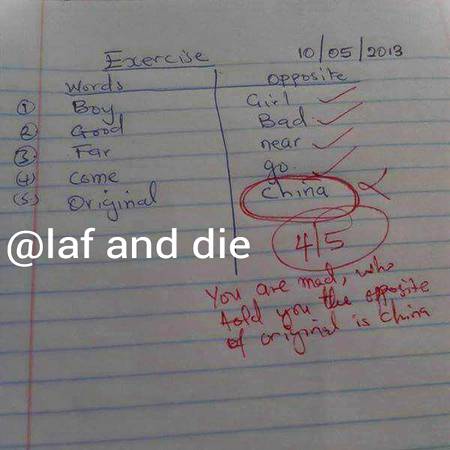 Exercise 10/05/2013
Words Opposite
① Boy Girl
② Good Bad
③ Far near
(4) Come go
(5) Original China
@laf and die
4/5
You are mad, who
told you the opposite
of original is China